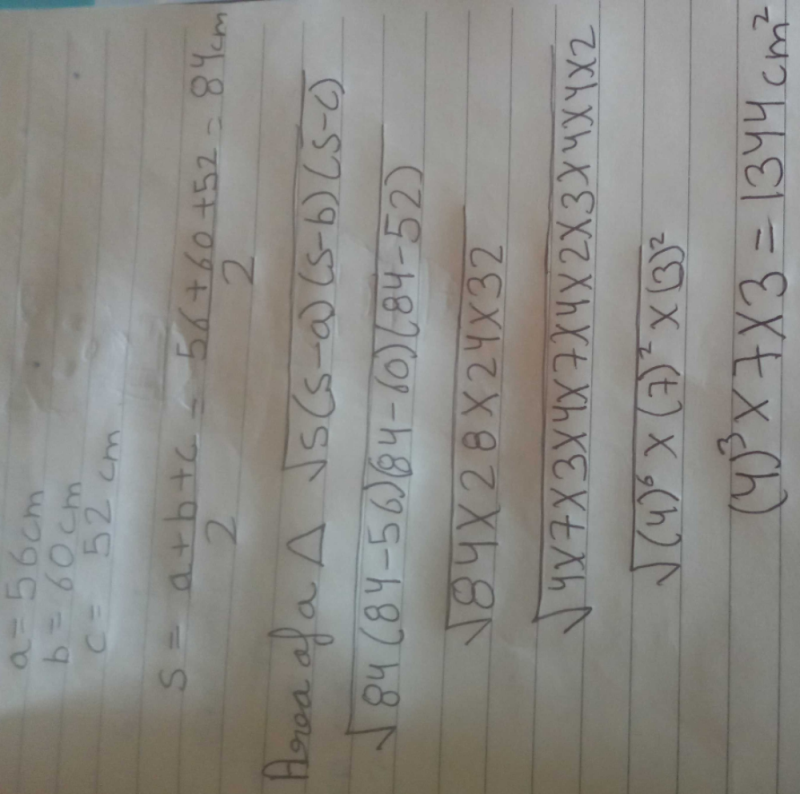 a = 56cm
b = 60cm
c = 52 cm
S = a+b+c/2 = 56+60+52/2 = 84cm
Area of a △ √S(S-a)(S-b)(S-c)
√84(84-56)(84-60)(84-52)
√84×28×24×32
√4×7×3×4×7×4×2×3×4×4×2
√(4)⁶ × (7)² × (3)²
(4)³ × 7 × 3 = 1344 cm²